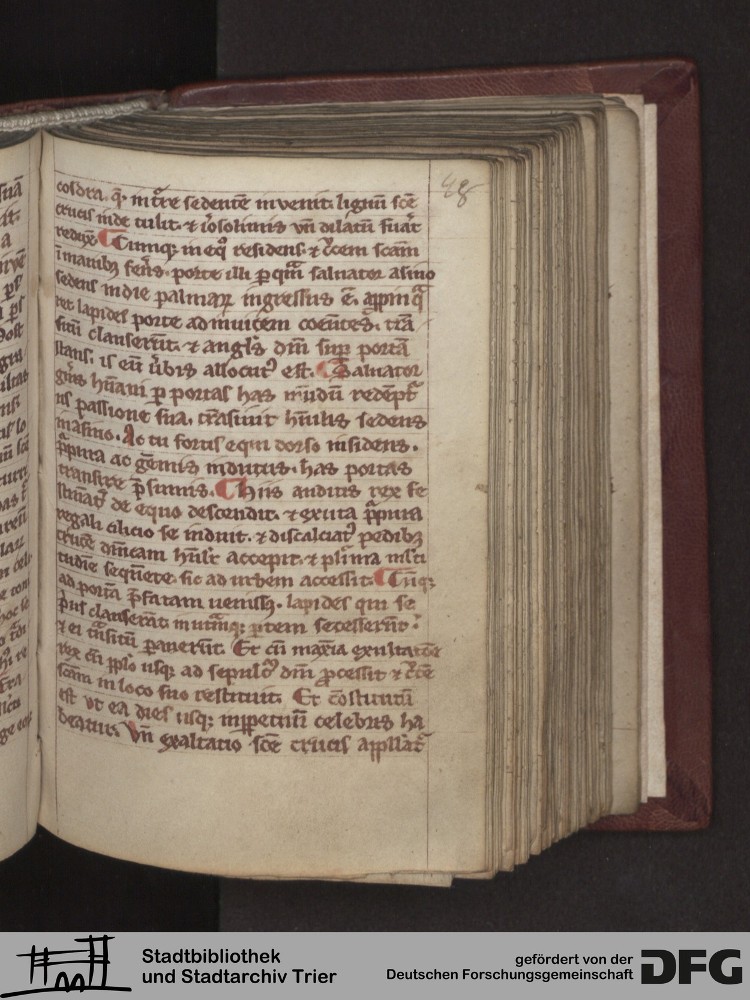 cosdra. q̄ in t̄re sedentē invenit. lignū scē
crucis inde tulit. ⁊ iɦ̓osolimis vn̄ dilatū fuāt
reduxit. Cumq; in eq̊ residens. ⁊ c̄cem scām
ī manibꝫ ferēs. porte illi p quā saluator asino
sedens in die palmaꝝ ingressus ē. appinq̄
ret lapides porte adinuicem coeūtes. trā
situ clauserūt. ⁊ angl̓s dn̄i sup portā
stans. is eū ūbis allocut᷒ est. Saluator
gn̄is hūani p portas has mūdū redēpt
us passione sua. trāsiuit hūilis sedens
in asino. Ac tu fortis equi dorso insidens.
p̄pura ac gēmis indutus. has portas
transire p̄sumis. Hiis auditis rex fe
stināt᷒ de equo descendit. ⁊ exuta p̄pura
regali cilicio se induit. ⁊ discalciat᷒ pedibꝫ
crucē dn̄icam hūilit̄ accepit. ⁊ pl̓ima ml̓ti
tudīe seqūēte. sic ad urbem accessit. Cūq;
ad portā p̄fatam uenissꝫ. lapides qui se
p̓us clauserāt. in utrāq; ptem secesserūt.
⁊ ei trāsitū pauerūt. Et cū maxīa exultatōe
rex cū pplo usq; ad sepulc᷒ dn̄i pcessit ⁊ c̄cē
scām in loco suo restituit. Et cōstitutū
est ut ea dies usq; inppetuū celebris ha
beatur. Vn̄ exaltatio scē crucis appllat᷒
Stadtbibliothek
und Stadtarchiv Trier
gefördert von der
Deutschen Forschungsgemeinschaft
DFG